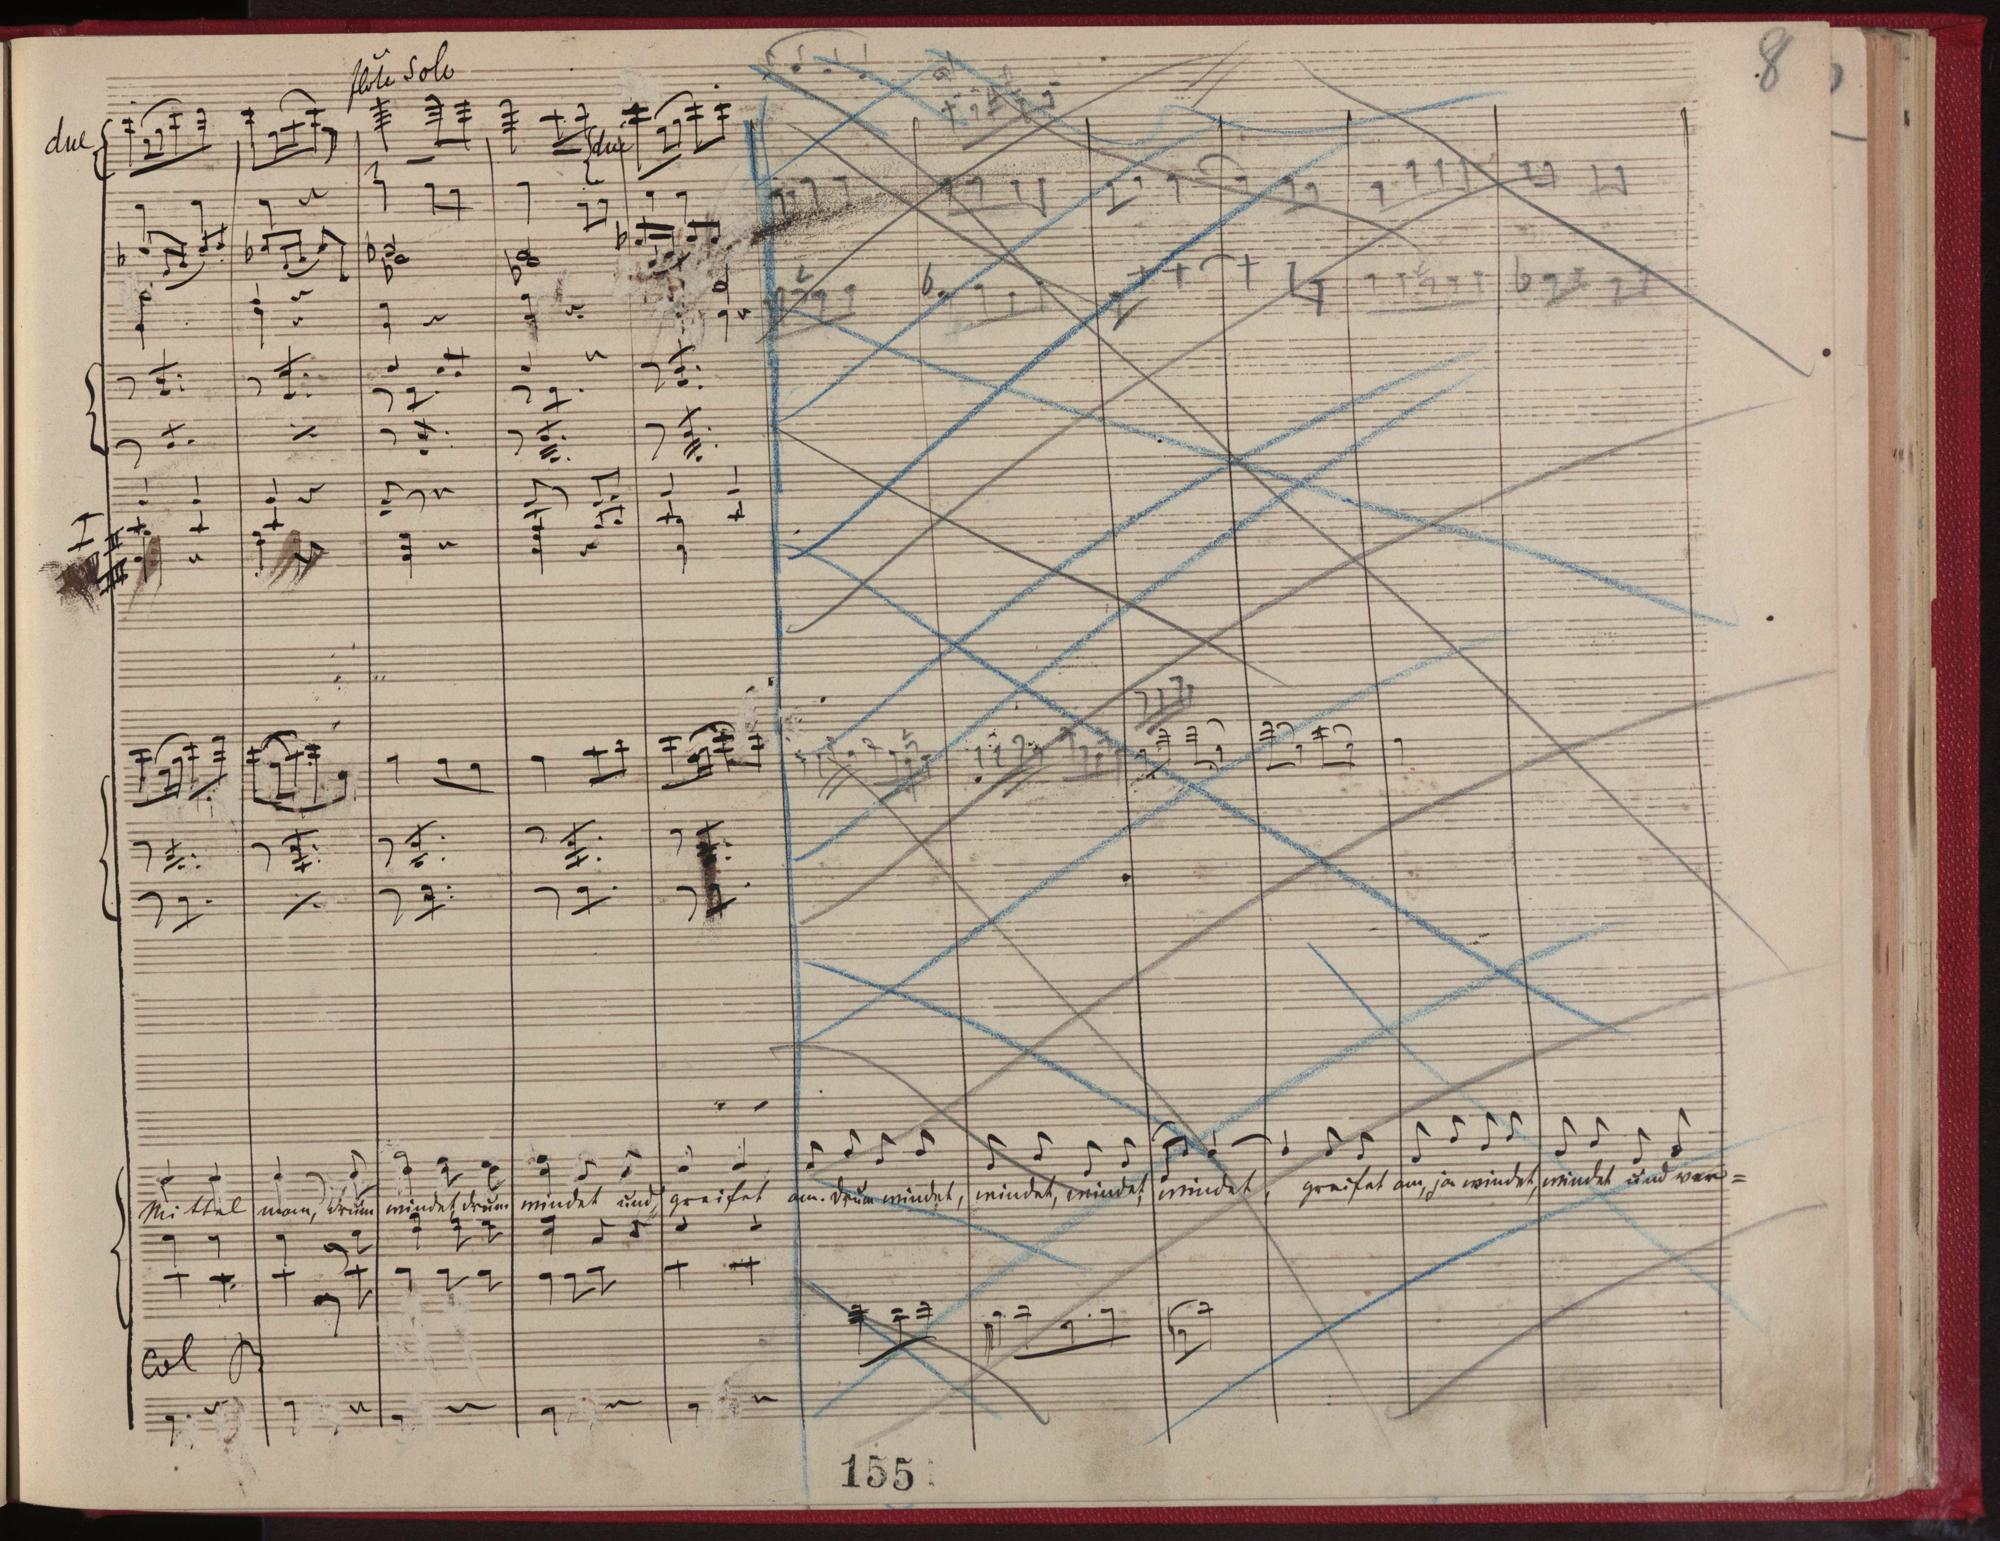 8
flöte solo
due
due
I
II
III
Mittel mann, drum windet, drum windet und greifet an. Drum windet, windet, windet, windet, greifet an, ja windet, windet und ver=
Col
155